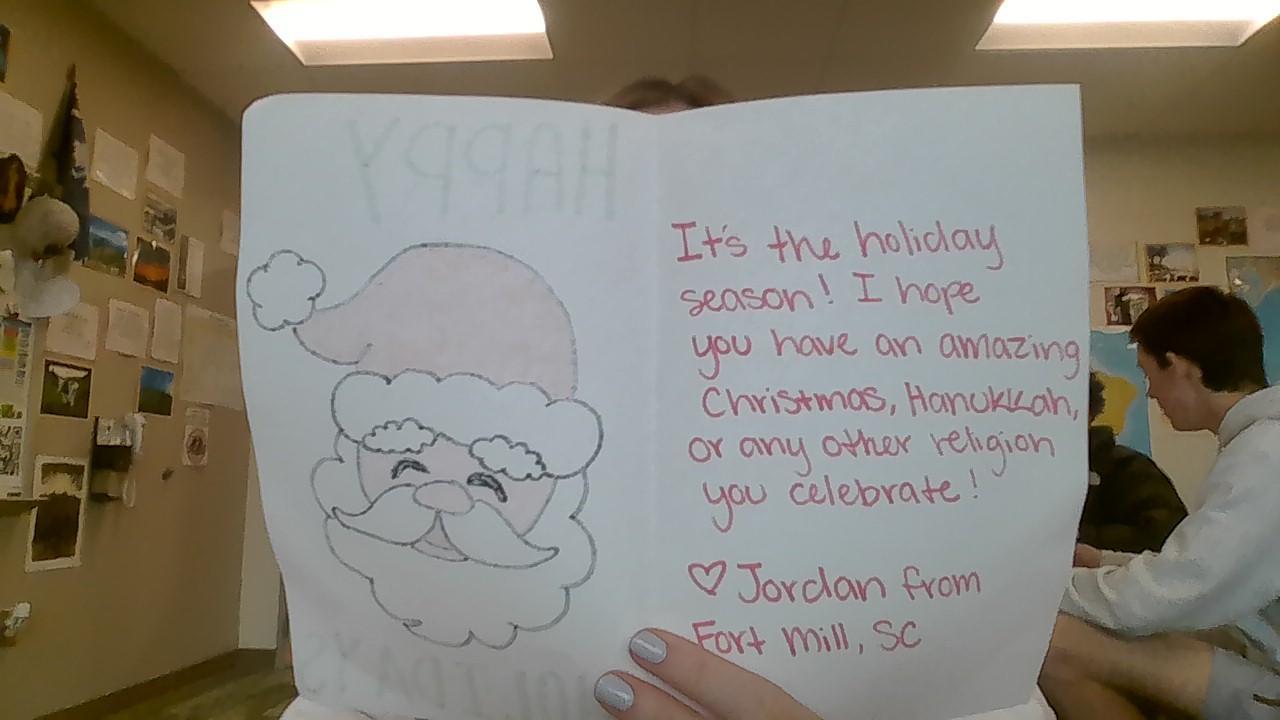 HAPPY
HOLIDAYS
It's the holiday
season! I hope
you have an amazing
Christmas, Hanukkah,
or any other religion
you celebrate!
♡ Jordan from
Fort Mill, SC